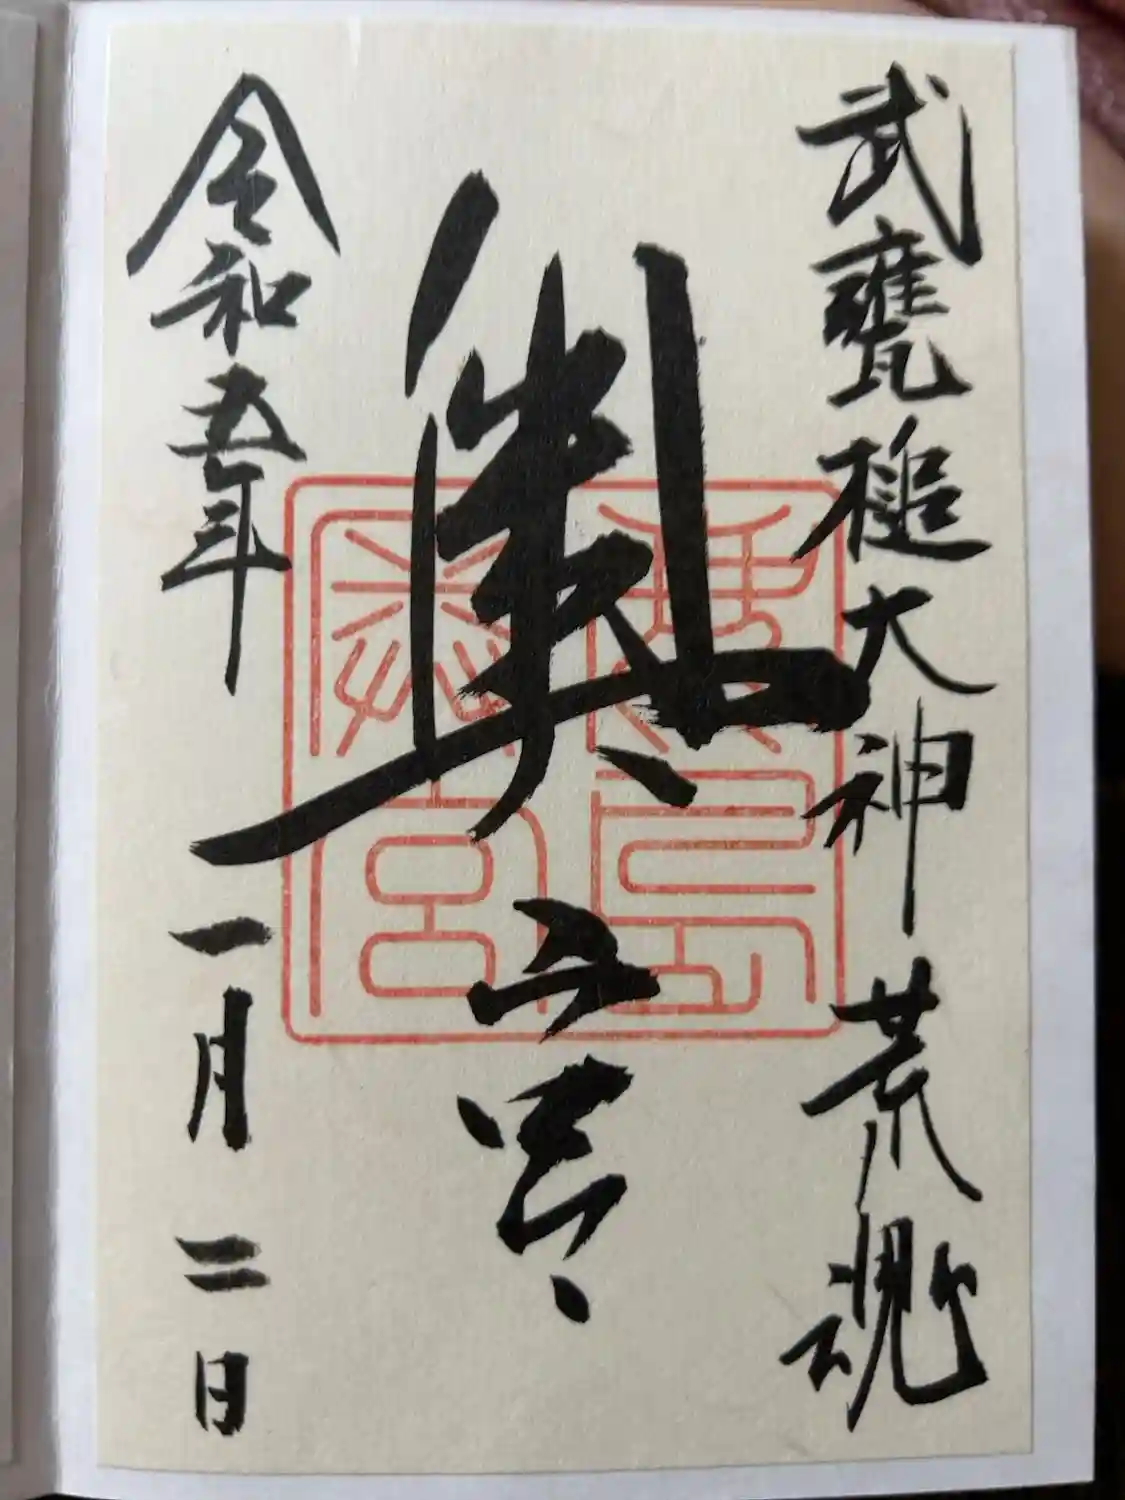 武甕槌大神 荒魂
奥宮
令和五年 一月 二日
鹿島
神宮